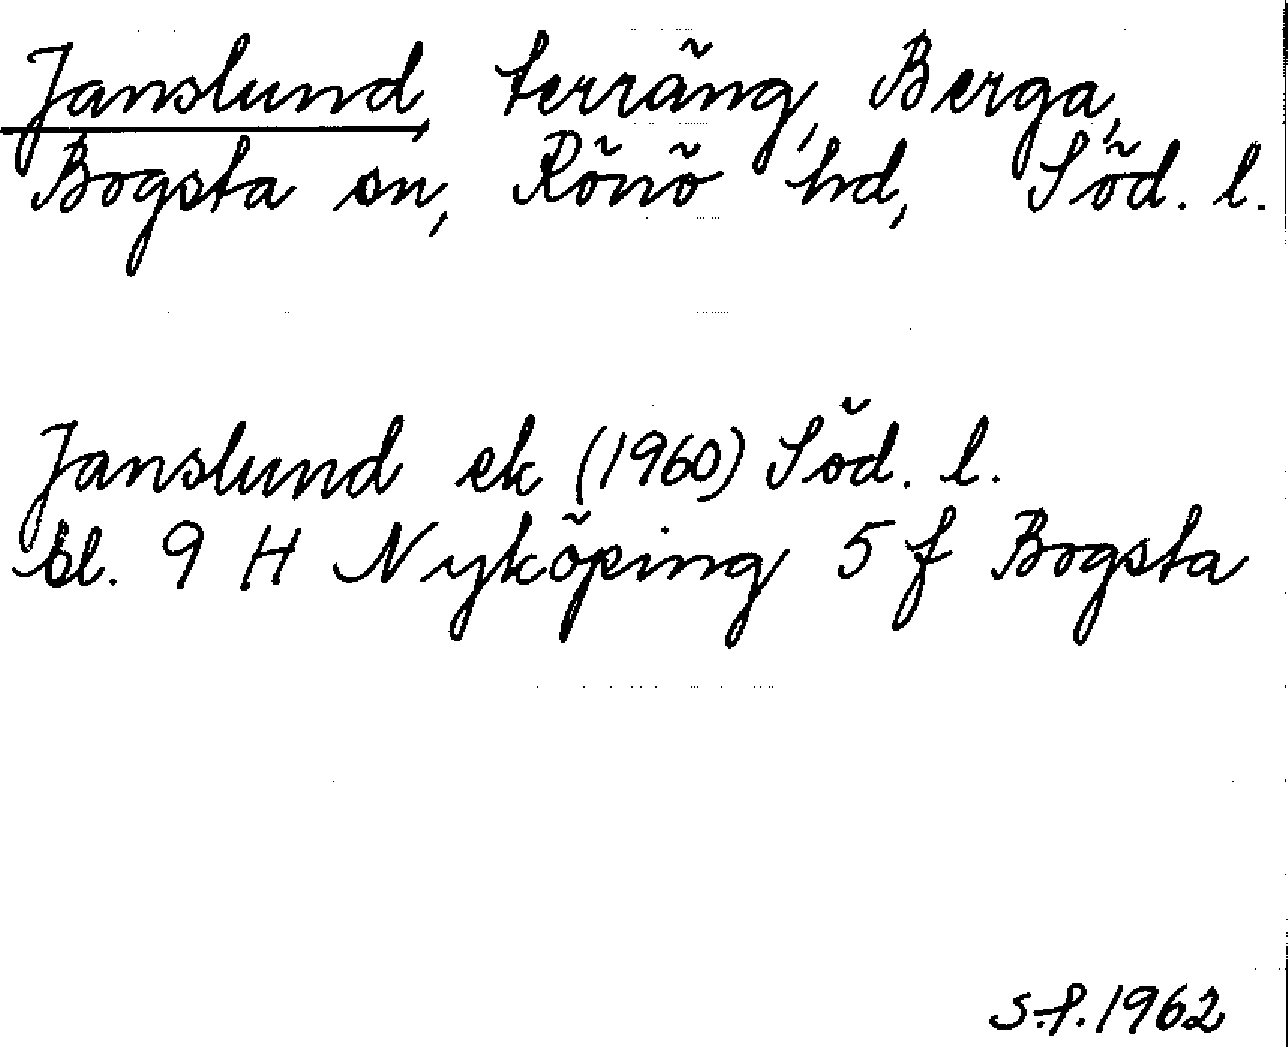 Janslund, terräng, Berga,
Bogsta sn, Rönö hd, Söd. l.
Janslund ek (1960) Söd. l.
bl. 9 H Nyköping 5 f Bogsta
S.f. 1962